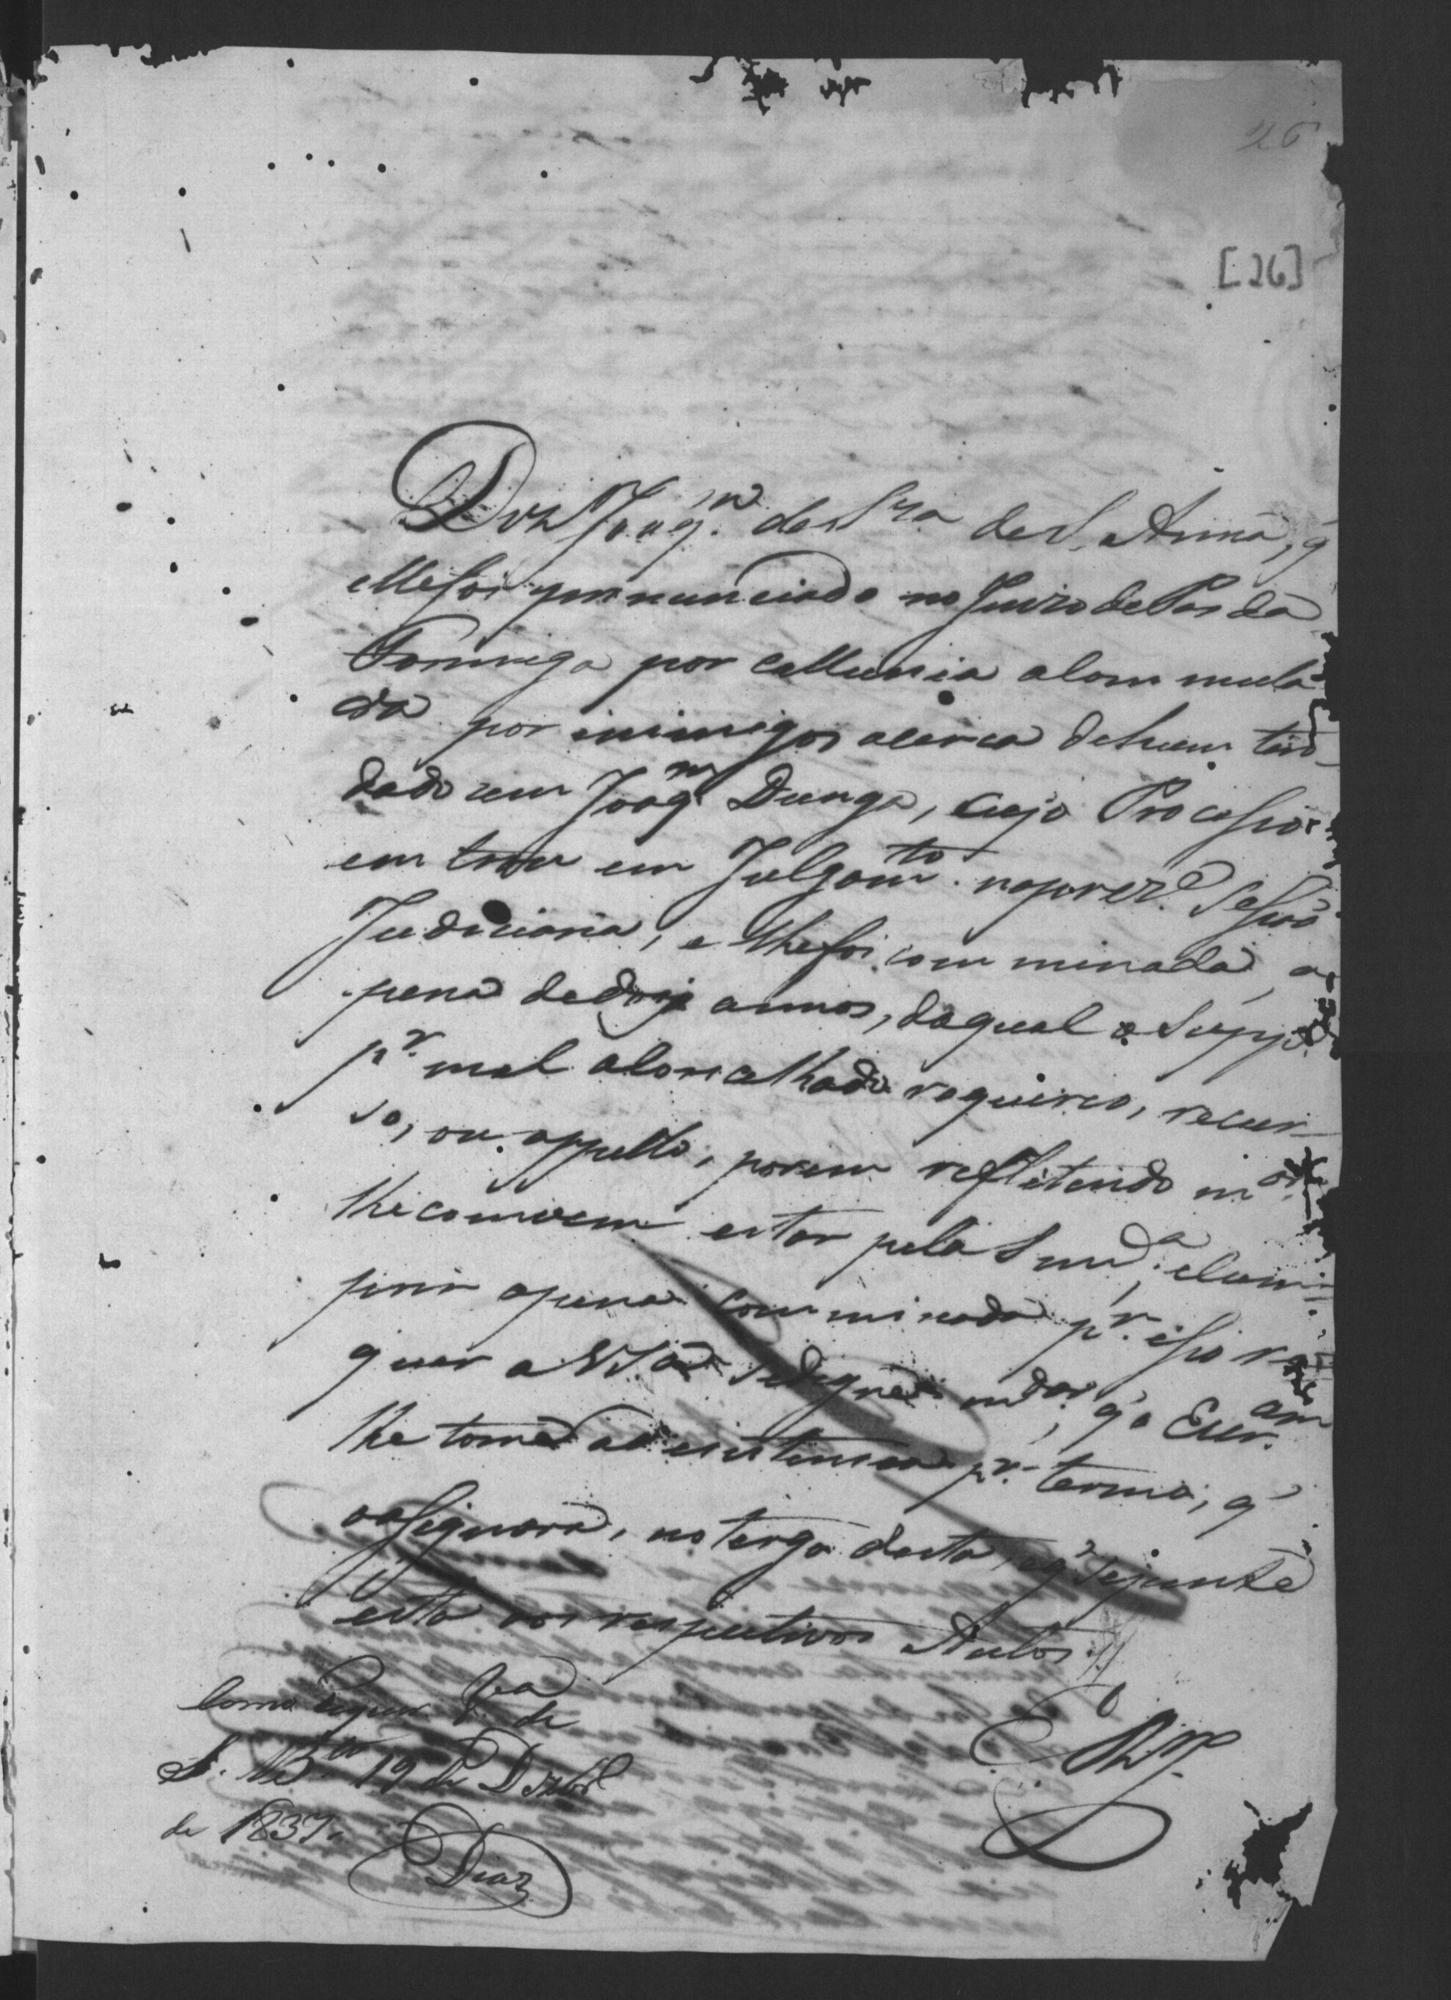 26
[26]
Diz Joaqm. de Sza de S. Anna, q'
elle foi pronunciado no Juizo de Pas da
Formiga por callunia alommula
da por inimigos acerca de hum tiro
dado em Joaqm Dunga, cujo Processo
entrou em Julgamto. na prezte. Sessão
Judiciaria, e lhe foi comminada a
pena de dois annos, da qual o Suppe.
pr. mal aconcelhado requireo, recur-
so, ou appello, porem reflitindo mor.
lhe convem estar pela Snnça, e cum-
prir a pena comminada pr. isso re-
quer a VSa se digne mdar, q' o Escram.
lhe tome a desistencia pr. termo, q'
assignará, no tergo desta, e q' se junte
esta aos respectivos Autos //
Como requer Va de
S. Bto 19 de Dzbro
de 1837.
Diaz
E. R. Mce.